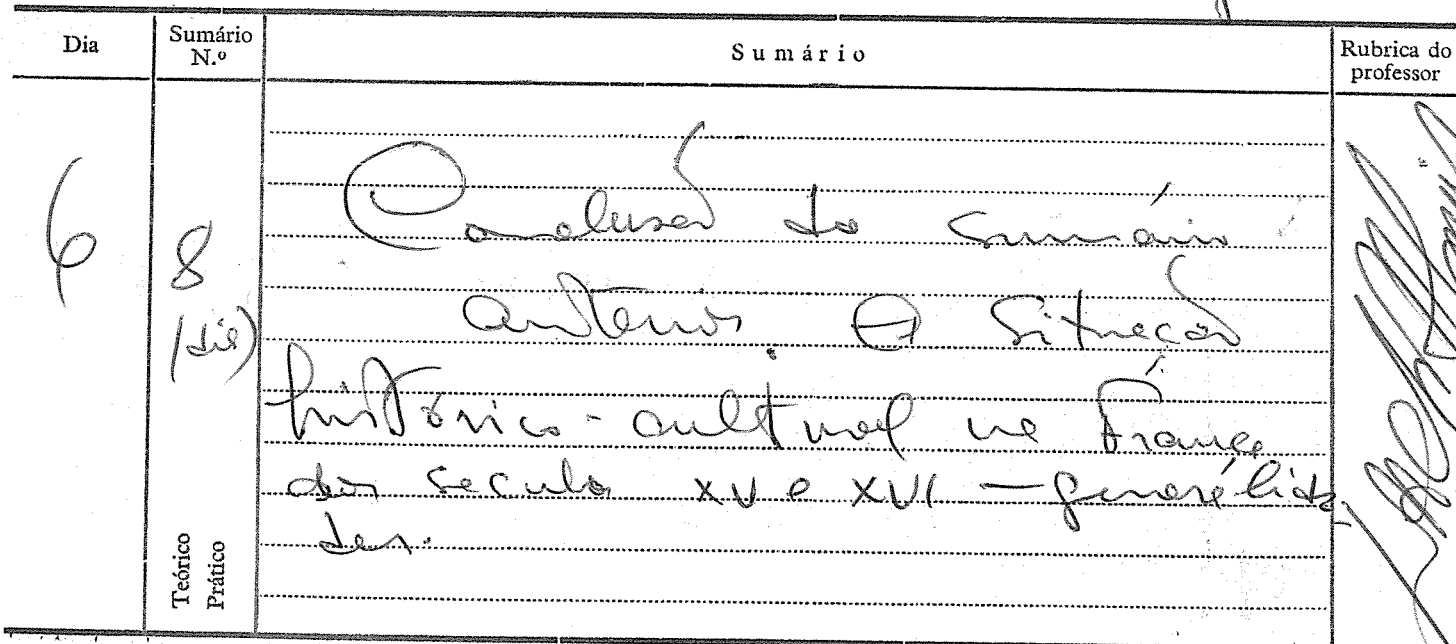 Dia
Sumário
N.º
Sumário
Rubrica do
professor
6
8
(bis)
Conclusão do sumário
anterior. A Situação
histórico-cultural na França
dos seculos XV e XVI — generalida
des.
Teórico
Prático